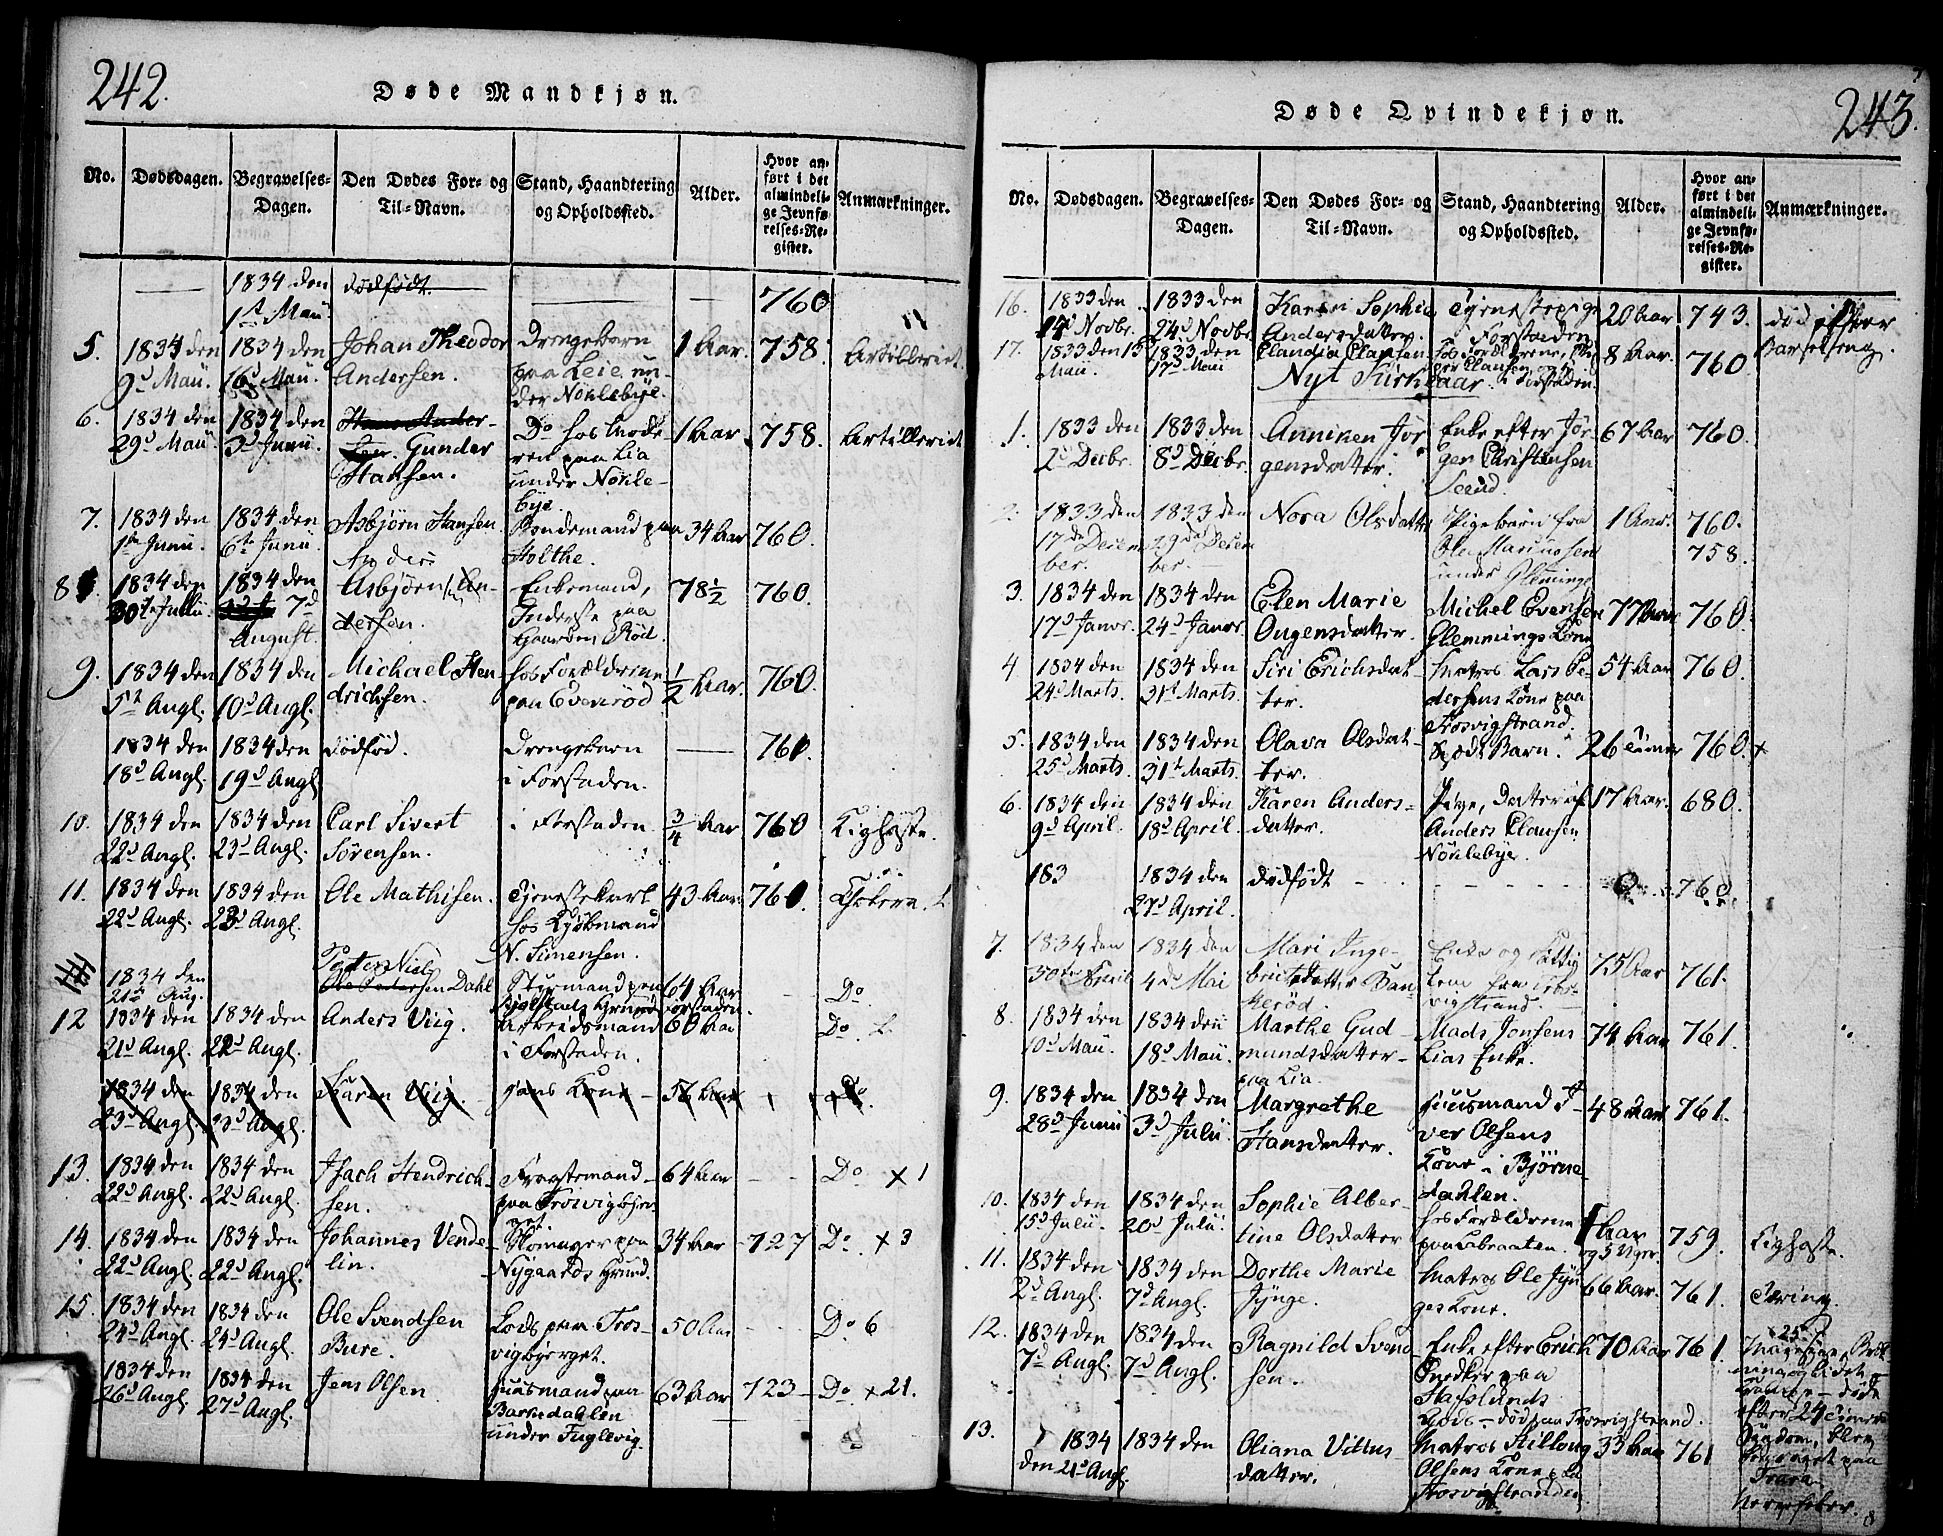 242.
Døde Mandkjøn.
No. Dødsdagen. Begravelses-Dagen. Den Dødes For- og Til-Navn. Stand, Haandtering og Opholdssted. Alder. Hvor anført i det almindelige Jevnførelses-Register. Anmærkninger.
1834 den 1st Maii dødfødt. 760
5. 1834 den 9d Maii. 1834 den 16d Maii. Johan Theodor Andersen. Drengebarn paa Leie under Nöklebÿe. 1 Aar. 758.
6. 1834 den 29d Maii 1834 den 3d Junii. Gunder Hansen. Do hos Moderen paa Lia under Nöklebÿe 1 Aar 758.
7. 1834 den Junii. 1834 den 6te Junii. Asbjørn Hansen Bondemand paa Holthe. 34 Aar 760.
8 1834 den 30te Julii. 1834 den 7d August. Asbjørn Andersen. Enkemand, Inderste paa Gaarden Röd. 78 1/2 760.
9. 1834 den 5te Augl. 1834 den 10d Augl. Michael Hendrichsen. hos Forældrene paa Evenröd 1/2 Aar. 760.
1834 den 18d Augl. 1834 den 19d Augl. dödföd. Drengebarn i Forstaden. 760.
10. 1834 den 22d Augl. 1834 den 23d Augl. Carl Sivert Sörensen. i Forstaden. 3/4 Aar 760 Kighoste.
11. 1834 den 22d Augl. 1834 den 23d Augl. Ole Mathisen. Tjenestekarl hos Kjøbmand N. Simensen. 43 Aar 760. Cholera.
1834 den 21de Aug. Peter Niels Dahl Styrmand paa Grund Forstaden. 64 Aar Do
12 1834 den 21d Augl. 1834 den 22d Augl. Anders Viig. Arbeidsmand i Forstaden. 60 Aar Do
1834 den 23d Augl. 1834 den 23d Augl. Karen Viig. hans Kone 56 Aar Do.
13. 1834 den 22d Augl. 1834 den 22d Augl. Isach Hendrichsen. paa 64 Aar Do x 1
14. 1834 den 22d Augl. 1834 den 22d Augl. Johannes Vendelin. Skomager paa Nÿgaards Grund. 34 Aar 727 Do. x 3
15. 1834 den 24d Augl. 1834 den 24d Augl. Ole Svendsen Bure. Lods paa Trosvigbjerget. 50 Aar Do 6
1834 den 26d Augl. 1834 den 27d Augl. Jens Olsen Huusmand paa under Fuglevig. 63 Aar 723 Do x 21.
243.
Døde Qvindekjøn.
No. Dødsdagen. Begravelses-Dagen. Den Dødes For- og Til-Navn. Stand, Haandtering og Opholdssted. Alder. Hvor anført i det almindelige Jevnførelses-Register. Anmærkninger.
16. 1833 den 14d Novbr. 1833 den 24d Novbr. Karen Sophie Andersdatter. Tjenestepige i Forstaden 20 Aar 743. död efter Barselseng.
17. 1833 den 15 Maii. 1833 den 17d Maii Claudia Clausen hos Forældrene, i Forstaden. 8 Aar. 760
Nyt Kirkeaar.
1. 1833 den 2d Decbr. 1833 den 8d Decbr. Anniken Jörgensdatter. Enke efter Jörgen Christensen 67 Aar 760.
2. 1833 den 17de December. 1833 den 29de December. Nora Olsdatter Pigebarn fra under Gleminge 1 Aar. 760. 758.
3. 1834 den 17d Janvr. 1834 den 24d Janvr. Elen Marie Ougensdatter. Michel Evensen Glemminge Kone 77 Aar 760.
4 1834 den 24d Marts. 1834 den 31t Marts. Siri Erichsdatter. Matros Lars Pedersens Kone paa Trosvigstrand. 54 Aar 760.
5. 1834 den 25d Marts. 1834 den 31t Marts. Olava Olsdatter. födt Barn. 26 Timer 760. x
6. 1834 den 9d April. 1834 den 18d April. Karen Andersdatter. Pige, Datter af Anders Clausen Nöklebÿe. 17 Aar. 680.
183 1834 den 27d April. dödfödt 760.
7. 1834 den 30te April 1834 den 4de Mai Mari Ingebrietsdatter Enke og Fattiglem fra Trosvigstrand. 75 Aar 761.
8. 1834 den 10d Maii. 1834 den 18d Maii. Marthe Gudmundsdatter paa Lia. Mads Jensens Lias Enke. 74 Aar 761.
9. 1834 den 28d Junii 1834 den 3d Julii. Margrethe Hansdatter. Huusmand Iver Olsens Kone i Björnedahlen. 48 Aar 761.
10. 1834 den 15d Julii. 1834 den 20d Julii. Sophie Albertine Olsdatter hos Forældrene paa Labraaten. 1 Aar og 5 Uger. 759. Kighoste.
11. 1834 den 2d Augl. 1834 den 7d Augl. Dorthe Marie Jÿnge. Matros Ole Jÿnges Kone. 66 Aar. 761. Tæring.
12. 1834 den 7d Augl. 1834 den 7d Augl. Ragnild Svendsen. Enke efter Erich Snedker paa Hafslunds Gods - död paa Trosvigstrand. 70 Aar 761. x 25. döde efter 24 Timers Sÿgdom, blev paa
13. 1834 den 21d Augl. 1834 den Oliana Vittusdatter. Matros Olsens Kone paa Trosvigstranden 33 Aar 761